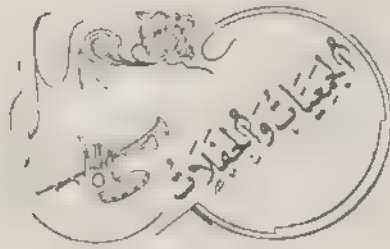 الجمعيَّاتُ وَالحَفَلَاتُ